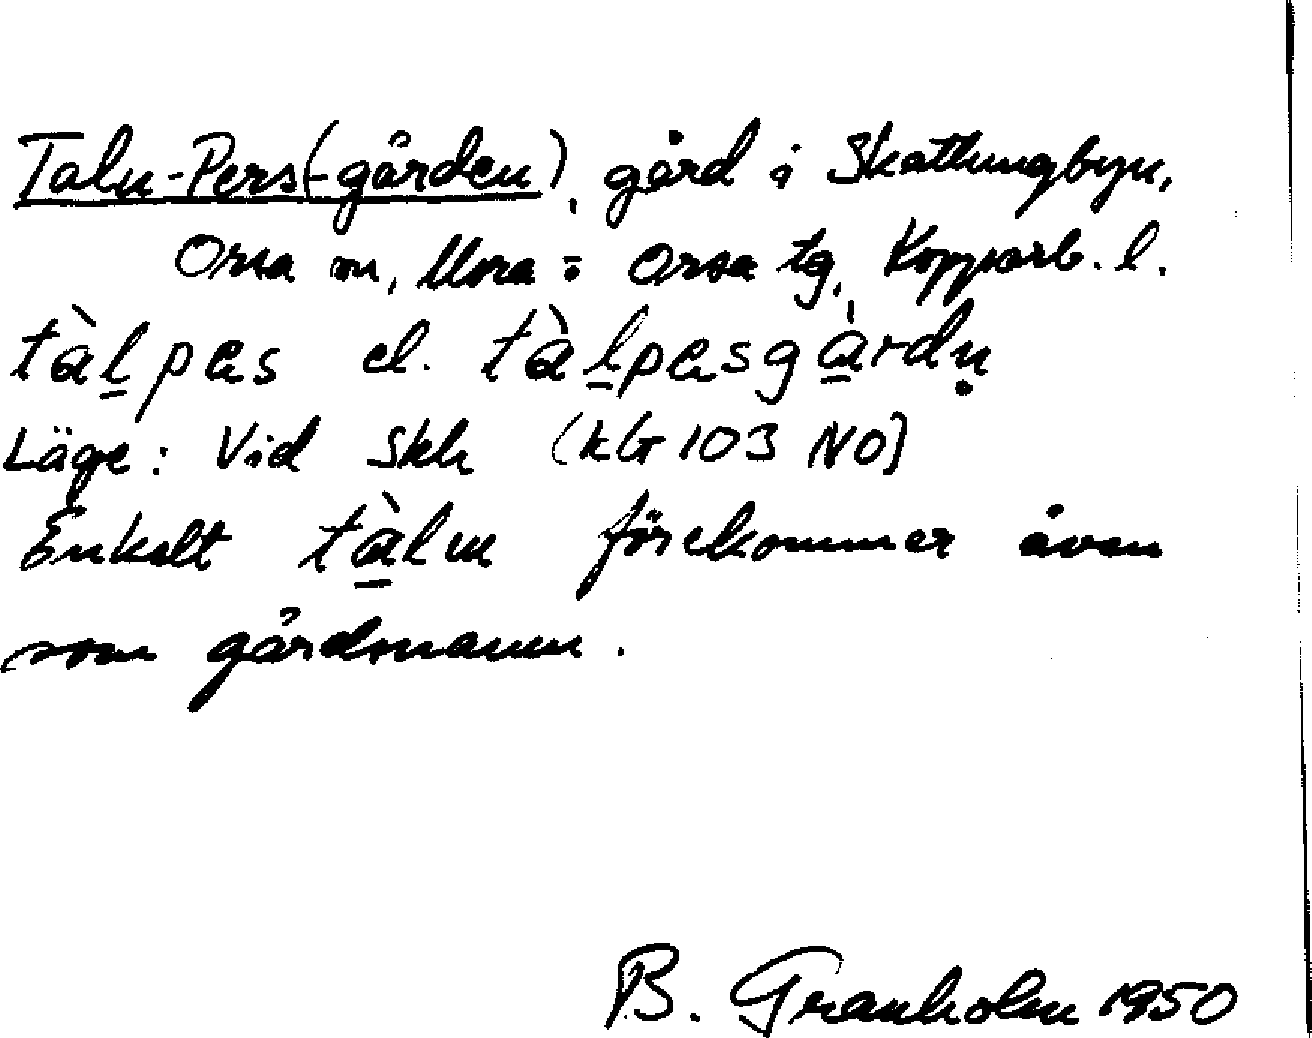 Talu-Pers(-gården), gård i Skattungbyn,
Orsa sn, Mora o Orsa tg, Kopparb. l.
tàl̠pɐs el. tàl̠pɐsgà̠rdṇ
Läge: Vid Skh (kG 103 NO)
Enkelt tà̠lɯ förekommer även
som gårdsnamn.
B. Granholm 1950